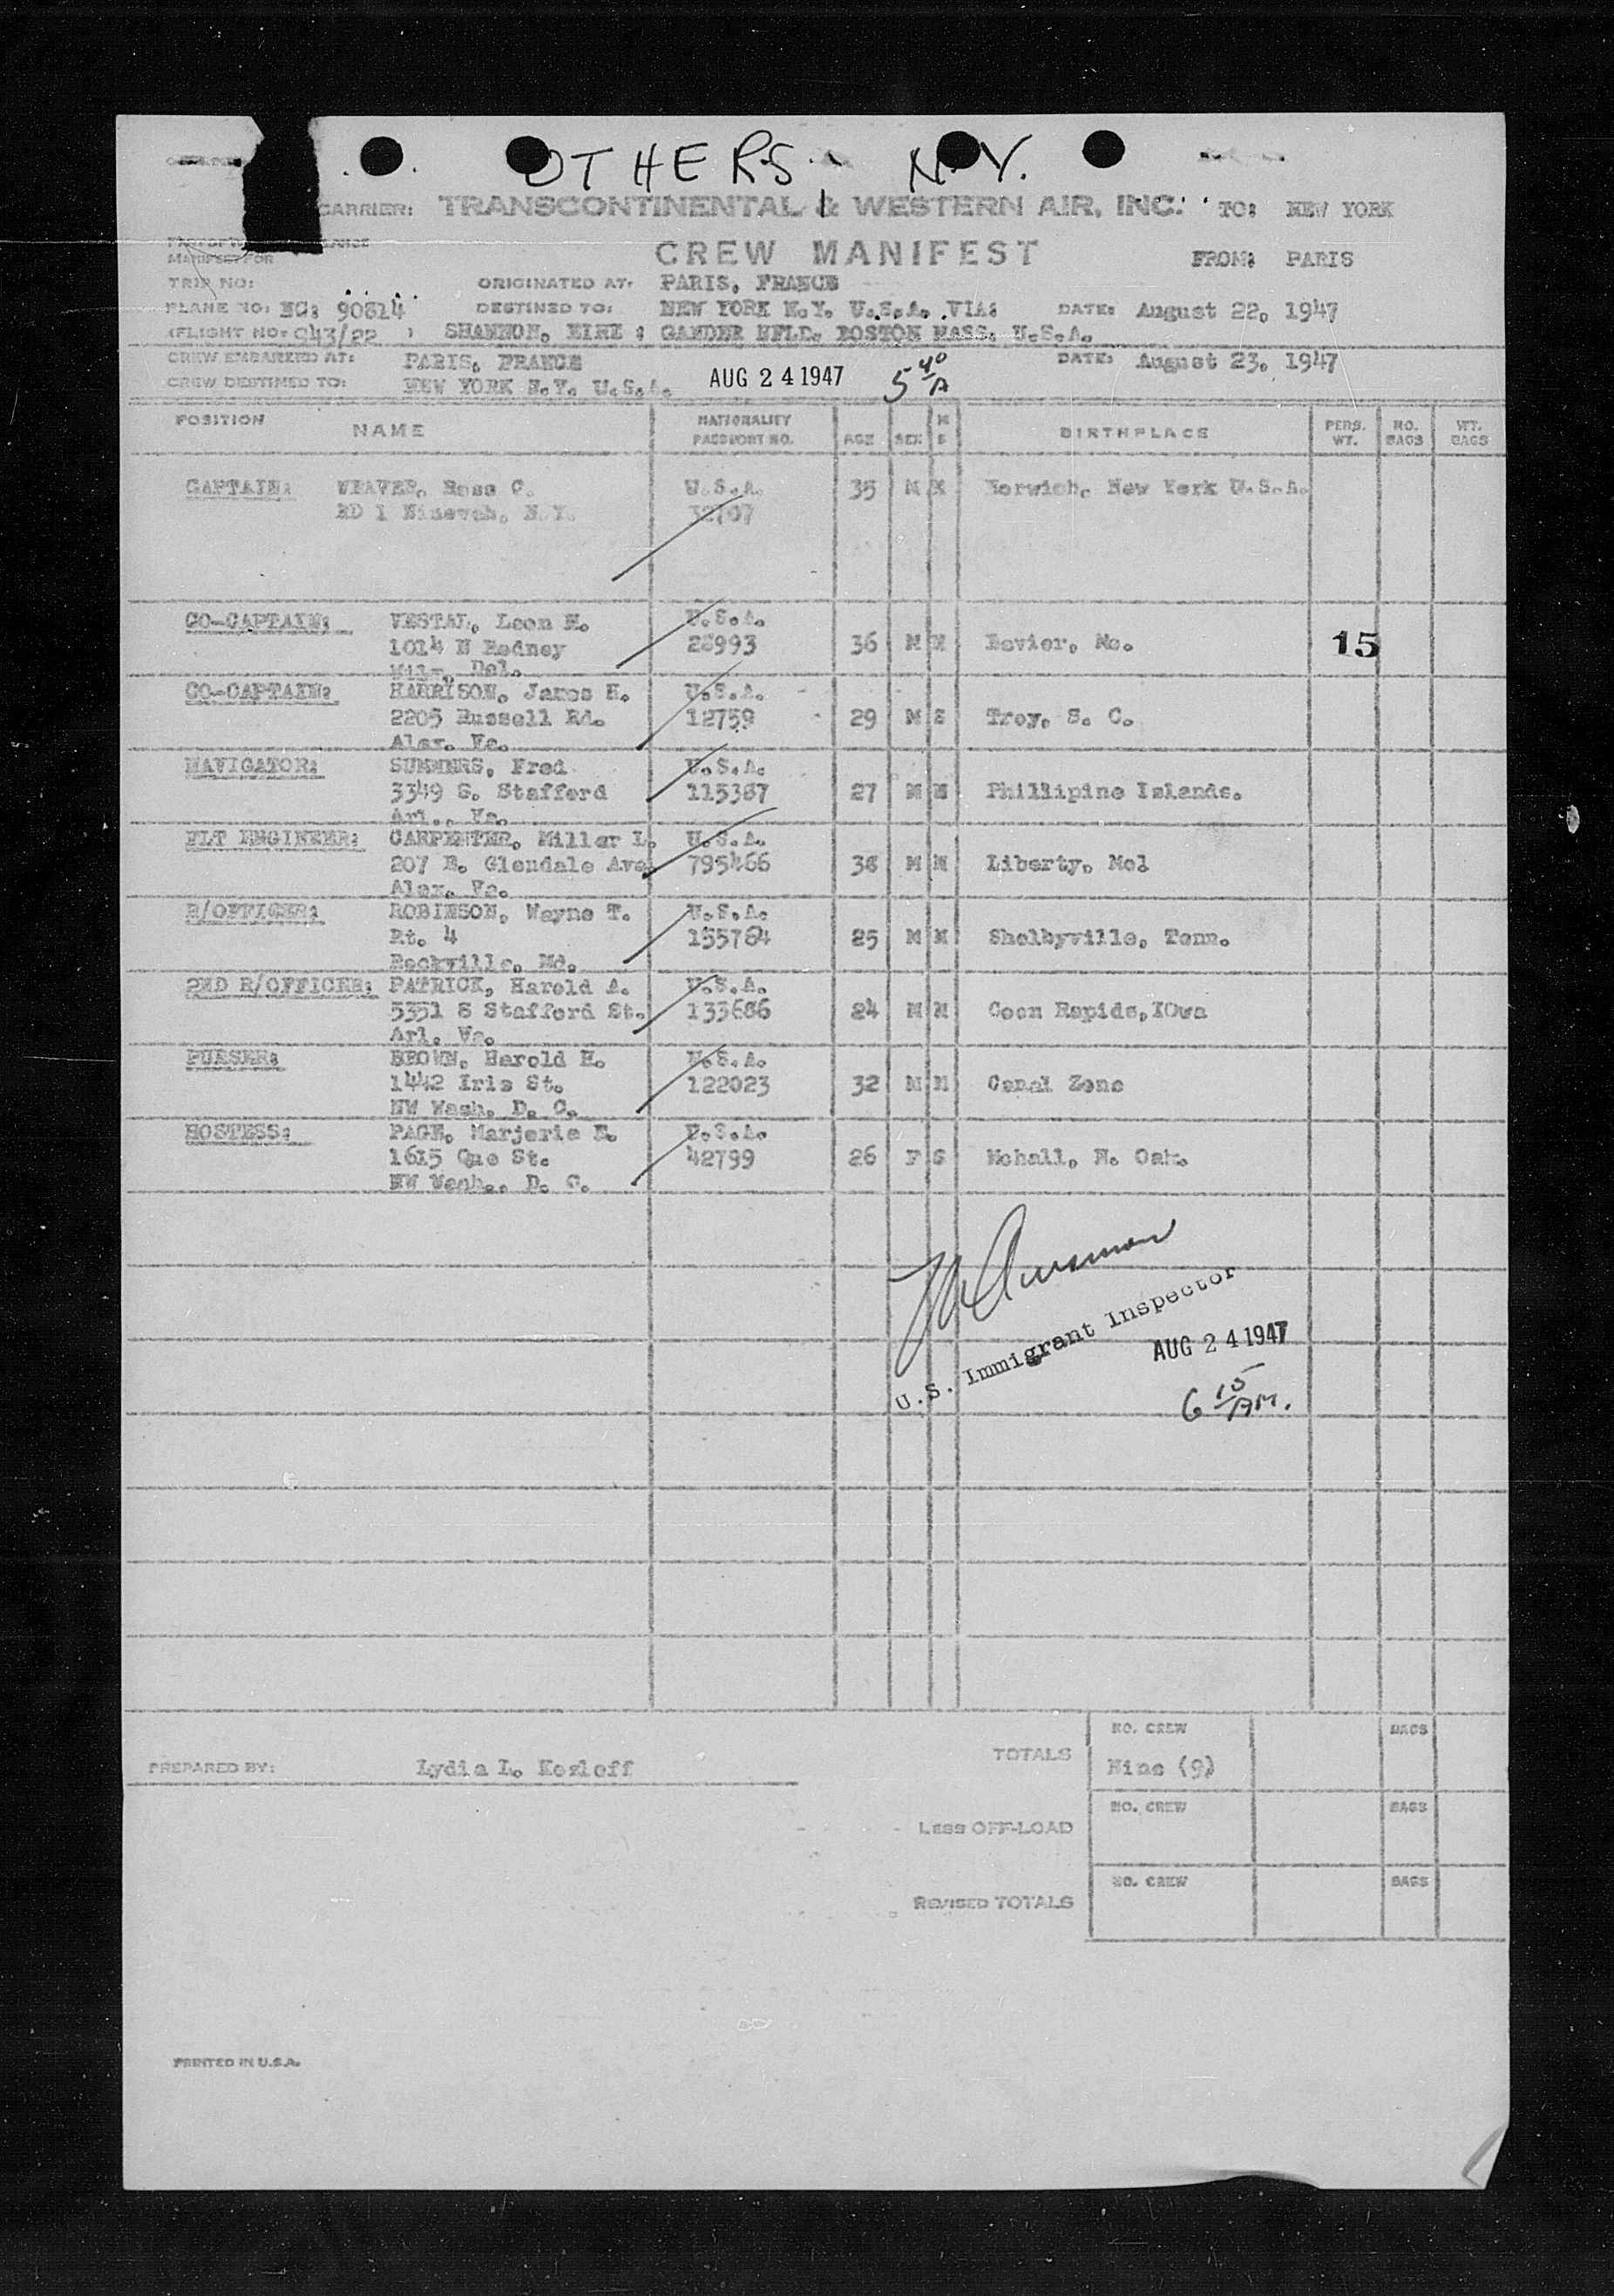 OTHERS N.Y.
CARRIER: TRANSCONTINENTAL & WESTERN AIR, INC. TO: NEW YORK
MANIFEST FOR
CREW MANIFEST FROM: PARIS
TRIP NO: ORIGINATED AT: PARIS, FRANCE
PLANE NO: NC: 90814 DESTINED TO: NEW YORK N.Y. U.S.A. VIA: DATE: August 22, 1947
(FLIGHT NO: 943/22 ) SHANNON, EIRE ; GANDER NFLD. BOSTON MASS. U.S.A.
CREW EMBARKED AT: PARIS, FRANCE DATE: August 23, 1947
CREW DESTINED TO: NEW YORK N.Y. U.S.A. AUG 24 1947 5 40/A
POSITION NAME NATIONALITY PASSPORT NO. AGE SEX M S BIRTHPLACE PERS. WT. NO. BAGS WT. BAGS
CAPTAIN: WEAVER, Ross C. U.S.A. 35 M M Norwich, New York U.S.A.
RD 1 Nineveh, N.Y. 32707
CO-CAPTAIN: VESTAL, Leon H. U.S.A.
1014 N Rodney 28993 36 M M Bevier, Mo. 15
Wilm. Del.
CO-CAPTAIN: HARRISON, James H. U.S.A.
2205 Russell Rd. 12759 29 M S Troy, S. C.
Alex. Va.
NAVIGATOR: SUMMERS, Fred U.S.A.
3349 S. Stafford 115387 27 M M Phillipine Islands.
Arl., Va.
FLT ENGINEER: CARPENTER, Millar L. U.S.A.
207 E. Glendale Ave 795466 38 M M Liberty, Mol
Alex. Va.
R/OFFICER: ROBINSON, Wayne T. U.S.A.
Rt. 4 155764 25 M M Shelbyville, Tenn.
Rockville, Md.
2ND R/OFFICER: PATRICK, Harold A. U.S.A.
5351 S Stafford St. 133686 24 M M Coon Rapids, IOwa
Arl. Va.
PURSER: BROWN, Harold H. U.S.A.
1442 Iris St. 122023 32 M M Canal Zone
NW Wash. D. C.
HOSTESS: PAGE, Marjorie E. U.S.A.
1615 Que St. 42799 26 F S Mohall, N. Oak.
NW Wash., D. C.
U.S. Immigrant Inspector
AUG 24 1947
6 15/AM.
NO. CREW BAGS
PREPARED BY: Lydia L. Kozloff TOTALS Nine (9)
NO. CREW BAGS
Less OFF-LOAD
NO. CREW BAGS
REVISED TOTALS
PRINTED IN U.S.A.